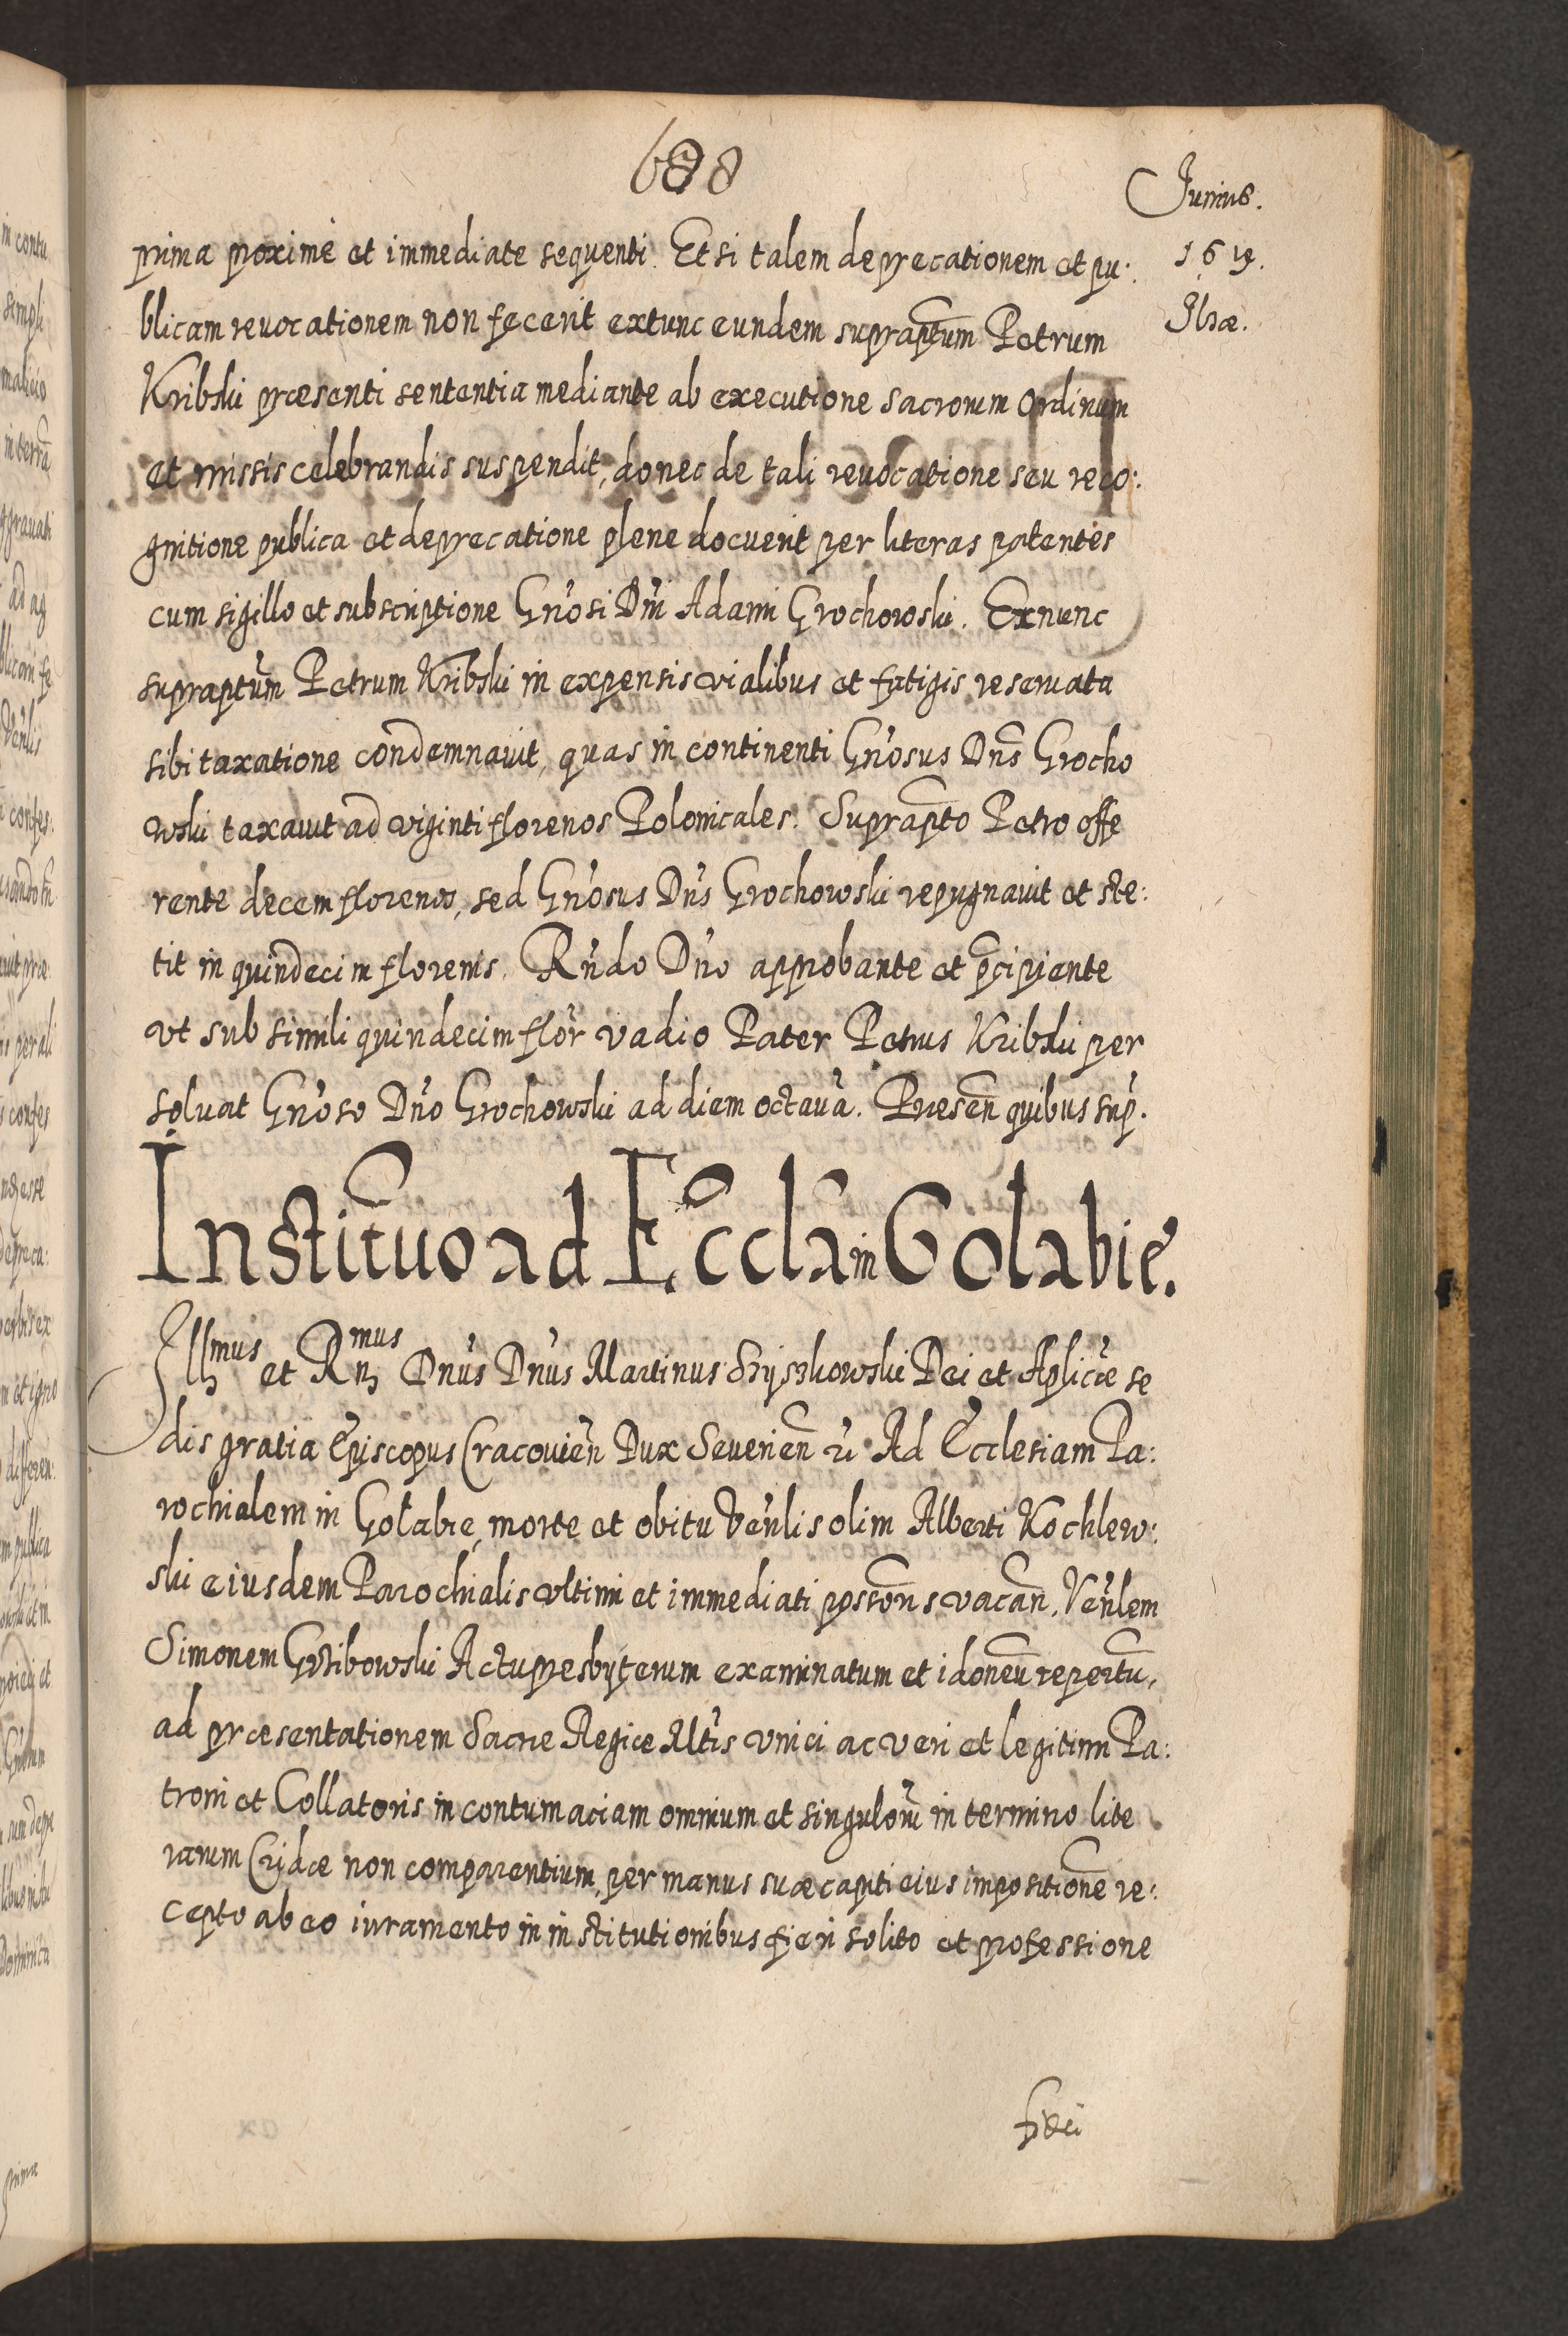 688
Junius.
1619.
Ilzæ.
prima proxime et immediate sequenti. Et si talem deprecationem et pu:
blicam reuocationem non fecerit extunc eundem supraptum Petrum
Kribski præsenti sententia mediante ab executione sacrorum ordinum
et missis celebrandis suspendit, donec de tali reuocatione seu reco:
gnitione publica et deprecatione plene docuerit per literas patentes
cum sigillo et subscriptione Gnosi Dni Adami Grochowski. Exnunc
supraptum Petrum Kribski in expensis vialibus et fatigis reseruata
sibi taxatione condemnauit, quas in continenti Gnosus Dns Grocho
wski taxauit ad viginti florenos Polonicales. Suprapto Petro offe
rente decem florenos, sed Gnosus Dns Grochowski repugnauit et ste:
tit in quindecim florenis. Rndo Dno approbante et pcipiente
vt sub simili quindecim flor vadio Pater Petrus Kribski per
soluat Gnoso Dno Grochowski ad diem octaua. Præsen quibus sup.
Institutio ad Eccla in Golabie.
Illmus et Rndmus Dnus Dnus Martinus Szyszkowski Dei et Aplicæ se
dis gratia Episcopus Cracouien Dux Seuerien Ad Ecclesiam Pa:
rochialem in Gołabie, morte et obitu Venlis olim Alberti Kochlew:
ski eiusdem Parochialis vltimi et immediati possoris vacan, Venlem
Simonem Grzibowski Actu presbyterum examinatum et idoneu repertu,
ad præsentationem Sacræ Regiæ Mtis vnici ac veri et legitimi Pa:
troni et Collatoris in contumaciam omnium et singuloru in termino lite
rarum Cridæ non comparentium, per manus suæ capiti eius impositione re:
cepto ab eo iuramento in institutionibus fieri solito et professione
fidei